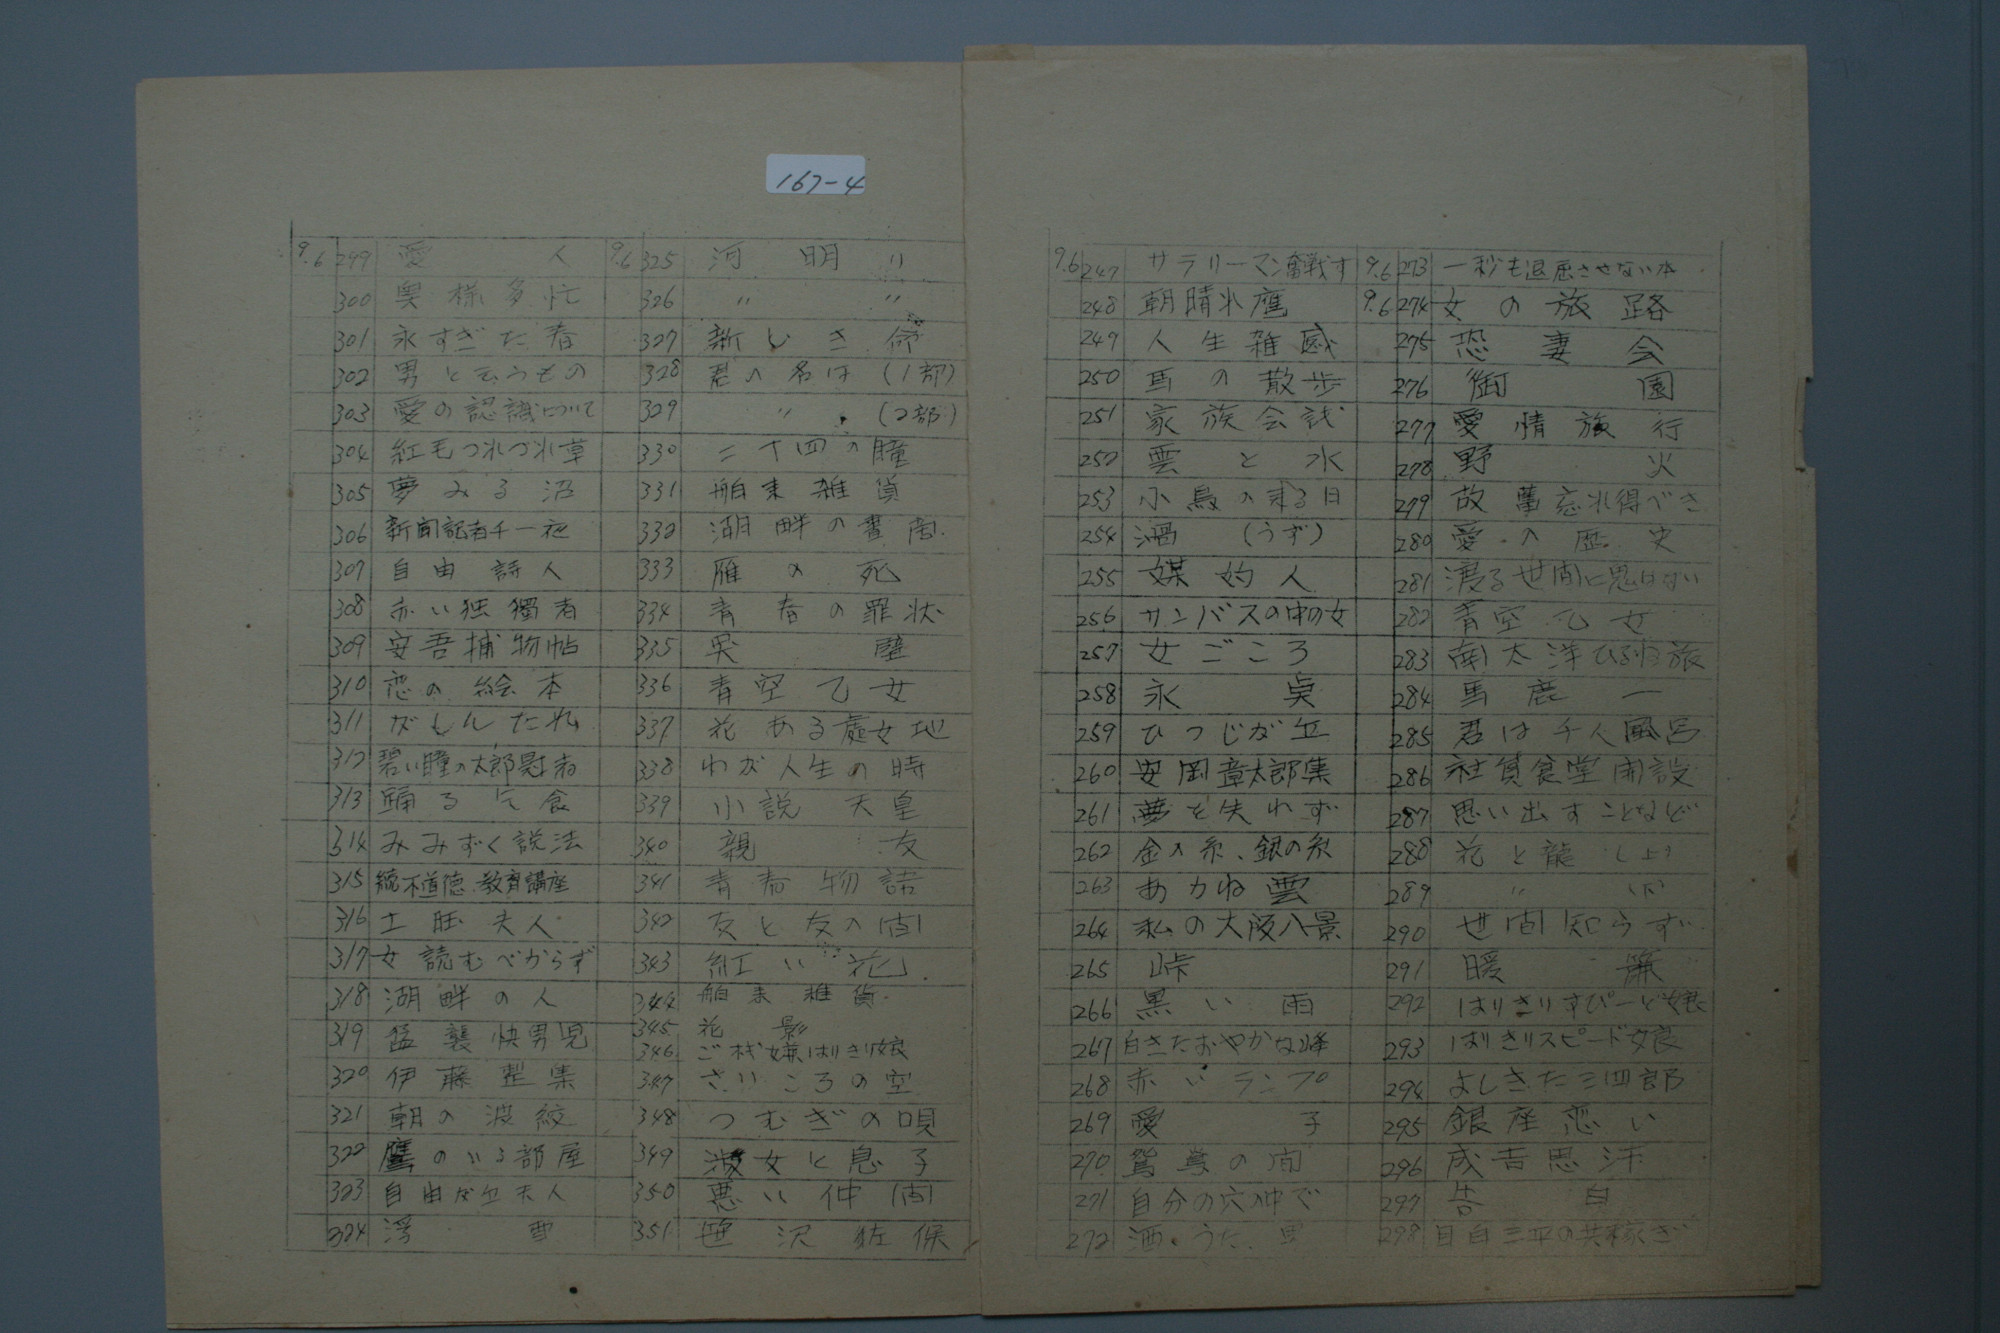 167-4
9.6 247 サラリーマン奮戦す
248 朝晴れ鷹
249 人生雑感
250 馬の散歩
251 家族会議
252 雲と水
253 小鳥の来る日
254 渦 (うず)
255 媒妁人
256 サンパスの中の女
257 女ごころ
258 氷点
259 ひつじが丘
260 安岡章太郎集
261 夢を失れず
262 金の糸、銀の糸
263 あかね雲
264 私の大阪八景
265 峠
266 黒い雨
267 白きたおやかな峰
268 赤いランプ
269 愛子
270 鴛鴦の間
271 自分の穴の中で
272 酒、うた、男
9.6 273 一秒も退屈させない本
9.6 274 女の旅路
275 恐妻会
276 御園
277 愛情旅行
278 野火
279 故舊忘れ得べき
280 愛の歴史
281 渡る世間に鬼はない
282 青空乙女
283 南太洋ひるね旅
284 馬鹿一
285 君は千人風呂
286 社員食堂開設
287 思い出すことなど
288 花と龍 (上)
289 〃 (下)
290 世間知らず
291 暖簾
292 はりきりすぴーど娘
293 はりきりスピード娘
294 よしきた三四郎
295 銀座恋い
296 成吉思汗
297 告白
298 目白三平の共稼ぎ
9.6 299 愛人
300 奥様多忙
301 永すぎた春
302 男と云うもの
303 愛の認識について
304 紅毛つれづれ草
305 夢みる沼
306 新聞記者千一夜
307 自由詩人
308 赤い独獨者
309 安吾捕物帖
310 恋の絵本
311 がしんたれ
312 碧い瞳の太郎冠者
313 踊る乞食
314 みみずく説法
315 続不道徳教育講座
316 土耳夫人
317 女読むべからず
318 湖畔の人
319 猛襲快男児
320 伊藤整集
321 朝の波紋
322 鷹のいる部屋
323 自由が丘夫人
324 浮雲
9.6 325 河明り
326 〃 〃
327 新しき命
328 君の名は (1部)
329 〃 (2部)
330 二十四の瞳
331 舶来雑貨
332 湖畔の書間
333 雁の死
334 青春の罪状
335 異聲
336 青空乙女
337 花ある處女地
338 わが人生の時
339 小説 天皇
340 親友
341 青春物語
342 友と友の間
343 紅い花
344 舶来雑貨
345 花影
346 ご机嫌はりきり娘
347 さいころの空
348 つむぎの唄
349 淑女と息子
350 悪い仲間
351 笹沢佐保